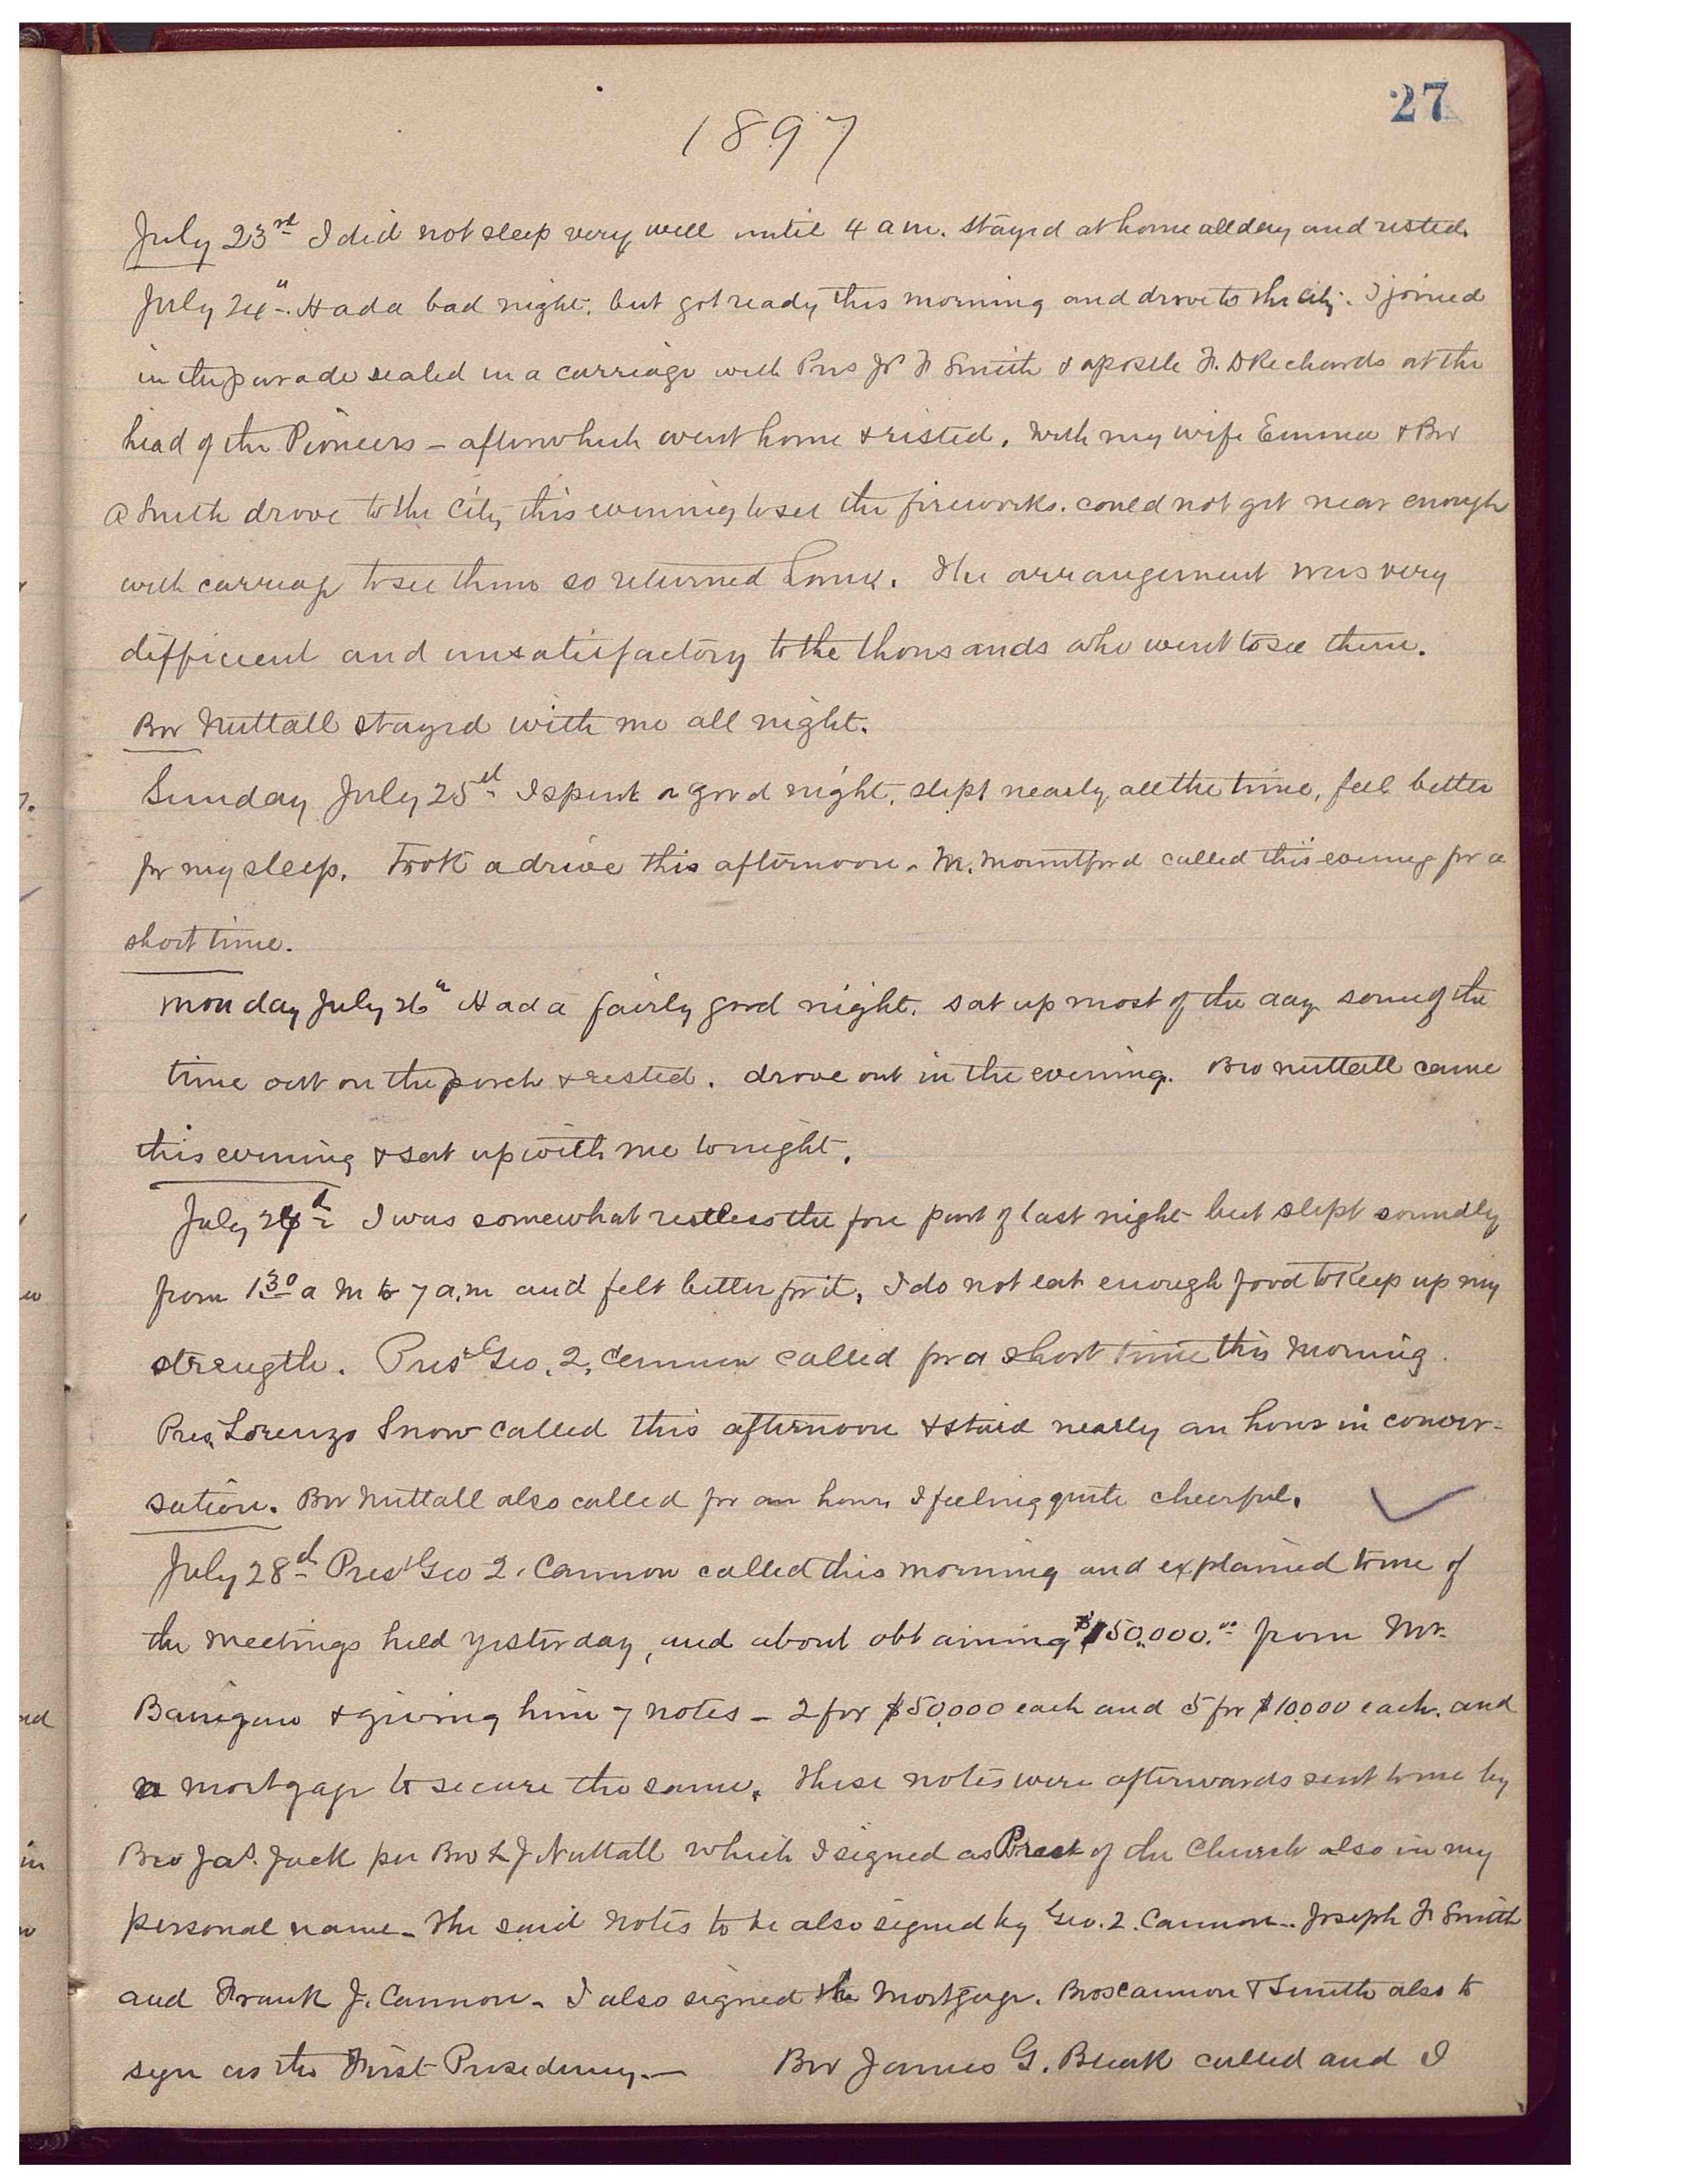 27
1897
July 23rd I did not sleep very well until 4 a m. stayed at home all day and rested.
July 24". Had a bad night. but got ready this morning and drove to the city. I joined
in the parade seated in a carriage with Pres Jos F Smith & apostle F. D Richards at the
head of the Pioneers - after which went home & rested. With my wife Emma & Bro
A Smith drove to the City this evening to see the fireworks. could not get near enough
with carriage to see them so returned home. The arrangement was very
difficient and unsatisfactory to the thousands who went to see them.
Bro Nuttall stayed with me all night.
Sunday July 25th I spent a good night. slept nearly all the time, feel better
for my sleep. Took a drive this afternoon. M. Mountford called this evening for a
short time.
Monday July 26" Had a fairly good night. sat up most of the day some of the
time out on the porch & rested. drove out in the evening. Bro Nuttall came
this evening & sat up with me to night.
July 27th I was somewhat restless the fore part of last night but slept soundly
from 1.30 a m to 7 a.m and felt better for it, I do not eat enough food to Keep up my
strength. Prest Geo. Q. Cannon called for a short time this Morning.
Pres. Lorenzo Snow called this afternoon & staid nearly an hour in conver-
sation. Bro Nuttall also called for an hour, I feeling quite cheerful.
July 28th Prest Geo Q. Cannon called this morning and explained to me of
the meetings held yesterday, and about obtaining $150,000.00 from Mr.
Banigan & giving him 7 notes - 2 for $50,000 each and 5 for $10000 each. and
a mortgage to secure the same. These notes were afterwards sent to me by
Bro Jas. Jack per Bro L J Nuttall which I signed as Prest of the Church also in my
personal name - The said notes to be also signed by Geo. Q. Cannon - Joseph F Smith
and Frank J. Cannon - I also signed the Mortgage. Bros Cannon & Smith also to
sign as the First Presidency. — Bro James G. Bleak called and I